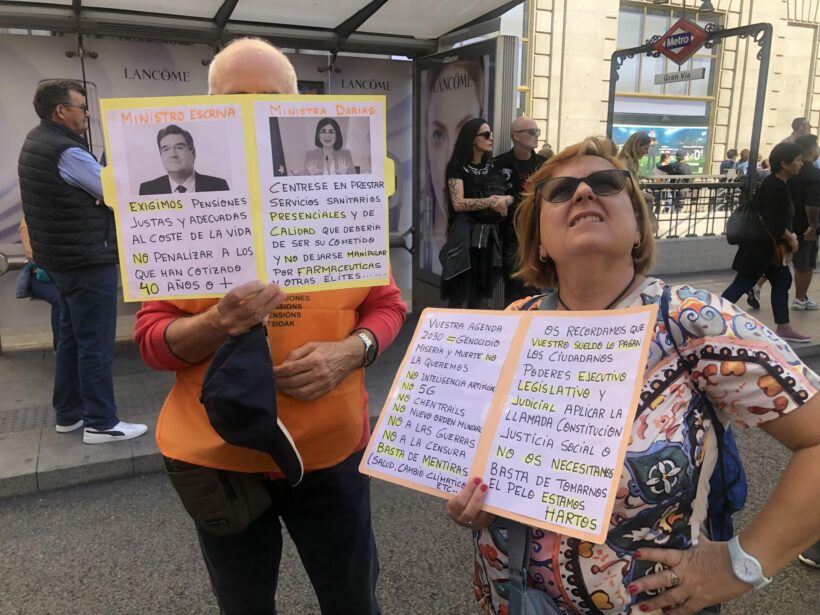 LANCÔME
LANCÔME
LANCÔME
Metro
Gran Vía
MINISTRO ESCRIVA
EXIGIMOS PENSIONES
JUSTAS Y ADECUADAS
AL COSTE DE LA VIDA
NO PENALIZAR A LOS
QUE HAN COTIZADO
40 AÑOS O +
MINISTRA DARIAS
CENTRESE EN PRESTAR
SERVICIOS SANITARIOS
PRESENCIALES Y DE
CALIDAD QUE DEBERIA
DE SER SU COMETIDO
Y NO DEJARSE MANIPULAR
POR FARMACEUTICAS
Y OTRAS ELITES......
PENSIONES
VUESTRA AGENDA
2030 = GENOCIDIO
MISERIA Y MUERTE NO
LA QUEREMOS
NO INTELIGENCIA ARTIFICIAL
NO 5G
NO CHENTRAILS
NO NUEVO ORDEN MUNDIAL
NO A LAS GUERRAS
NO A LA CENSURA
BASTA DE MENTIRAS
(SALUD, CAMBIO CLIMATICO
ETC..)
OS RECORDAMOS QUE
VUESTRO SUELDO LO PAGAN
LOS CIUDADANOS
PODERES EJECUTIVO
LEGISLATIVO Y
JUDICIAL APLICAR LA
LLAMADA CONSTITUCION
JUSTICIA SOCIAL O
NO OS NECESITAMOS
BASTA DE TOMARNOS
EL PELO ESTAMOS
HARTOS